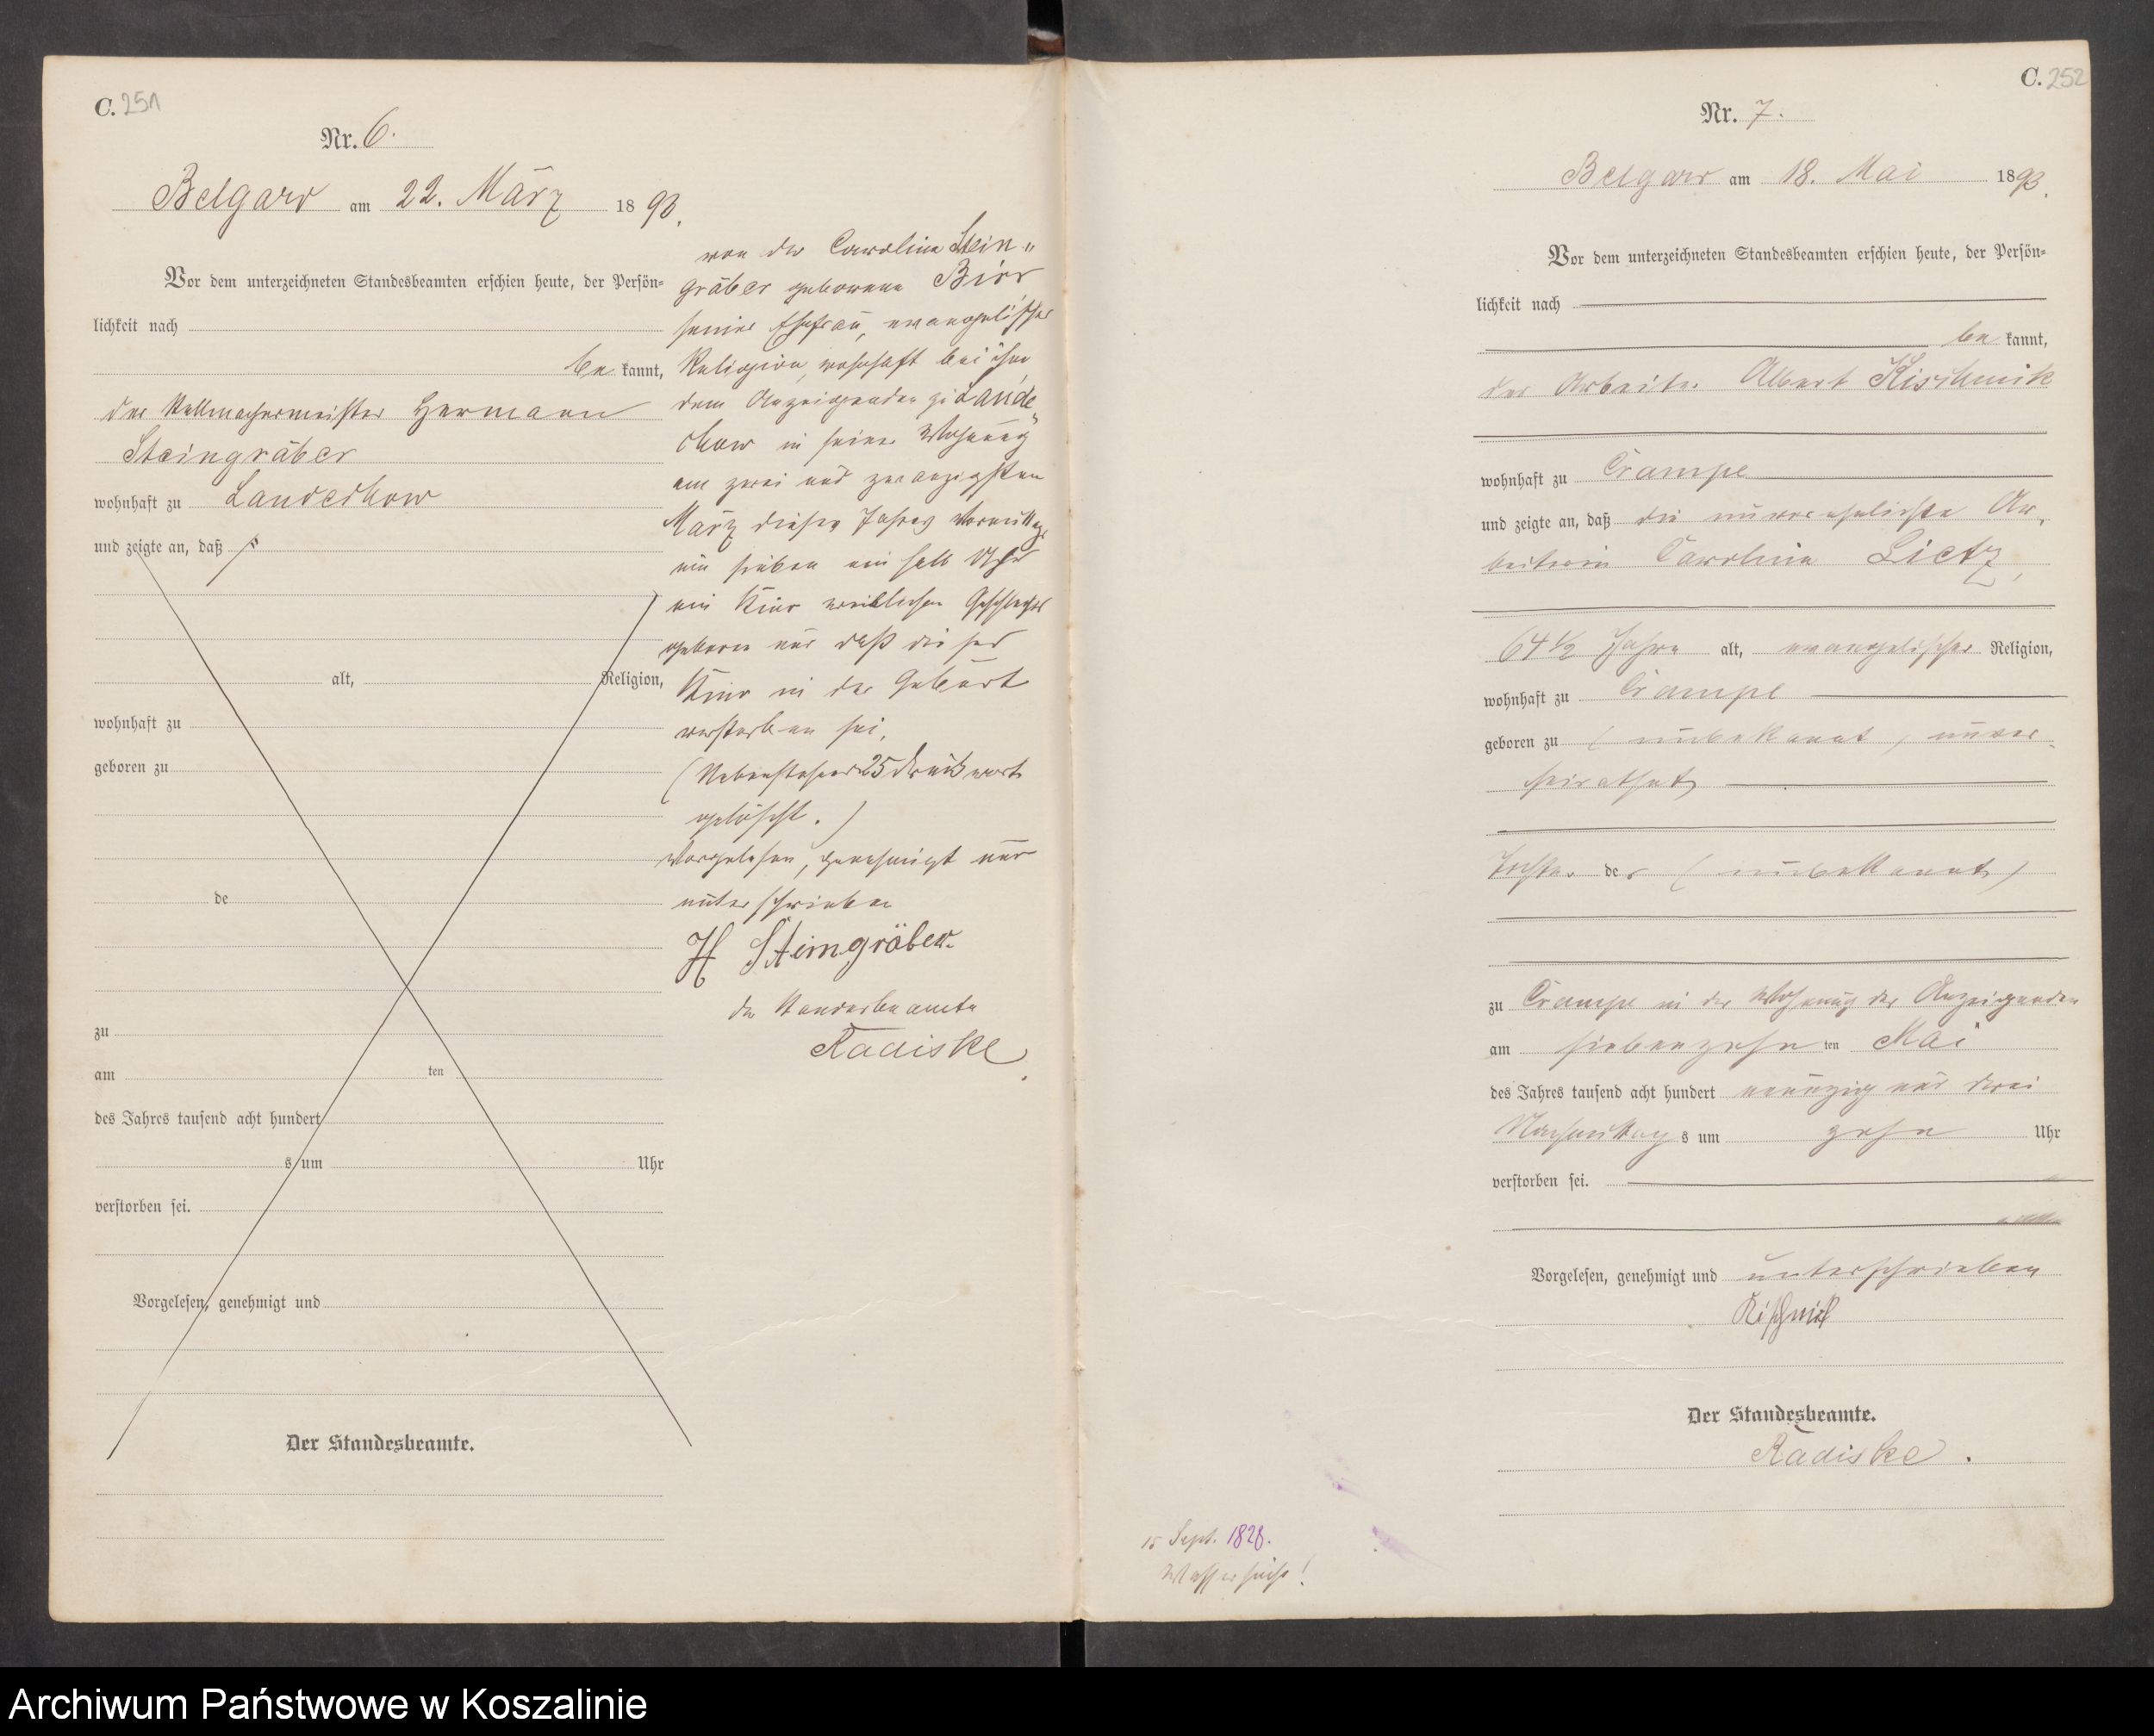 C. 251
Nr. 6.
Belgard am 22. März 1893.
Vor dem unterzeichneten Standesbeamten erschien heute, der Persön-
lichkeit nach
be kannt,
der Stellmachermeister Hermann
Steingräber
wohnhaft zu Landechow
und zeigte an, daß
alt, Religion,
wohnhaft zu
geboren zu
de
zu
am ten
des Jahres tausend acht hundert
s um Uhr
verstorben sei.
Vorgelesen, genehmigt und
Der Standesbeamte.
von der Caroline Stein„
gräber geborene Birr
seiner Ehefrau, evangelischer
Religion, wohnhaft bei ihm,
dem Anzeigenden zu Lande„
chow in seiner Wohnung
am zwei und zwanzigsten
März dieses Jahres Vormittags
um sieben ein halb Uhr
ein Kind weiblichen Geschlechts
geboren und daß dieses
Kind in der Geburt
verstorben sei.
(Nebenstehend 25 Druckworte
gelöscht.)
Vorgelesen, genehmigt und
unterschrieben
H Steingräber.
Der Standesbeamte
Radiske
C. 252
Nr. 7.
Belgard am 18. Mai 1893.
Vor dem unterzeichneten Standesbeamten erschien heute, der Persön-
lichkeit nach
be kannt,
der Arbeiter Albert Kischnick
wohnhaft zu Crampe
und zeigte an, daß die unverehelichte Ar-
beiterin Caroline Lietz,
64 1/2 Jahre alt, evangelischer Religion,
wohnhaft zu Crampe
geboren zu (unbekannt) unver-
heirathet,
Tochter der (unbekannt)
zu Crampe in der Wohnung des Anzeigenden
am siebenzehn ten Mai
des Jahres tausend acht hundert neunzig und drei
Nachmittag s um zehn Uhr
verstorben sei.
Vorgelesen, genehmigt und unterschrieben
Kischnick
Der Standesbeamte.
Radiske.
15 Sept. 1828.
Archiwum Państwowe w Koszalinie